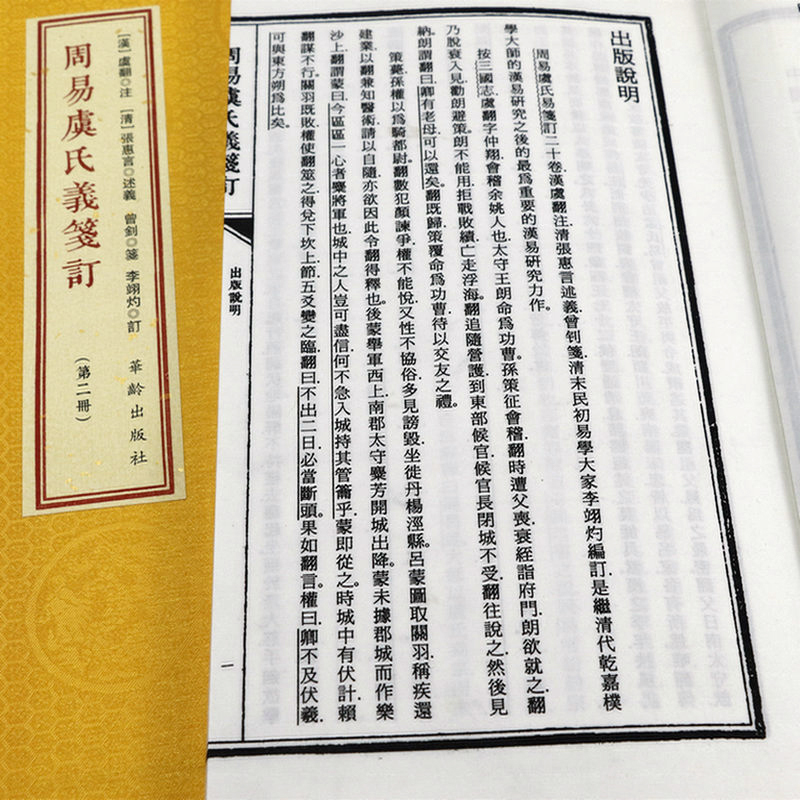 〔漢〕虞翻◎注 〔清〕張惠言◎述義 曾釗◎箋 李翊灼◎訂
周易虞氏義箋訂
(第二冊)
華齡出版社
出版說明
周易虞氏易箋訂二十卷漢虞翻注清張惠言述義曾釗箋清末民初易學大家李翊灼編訂是繼清代乾嘉樸
學大師的漢易研究之後的最爲重要的漢易研究力作
按三國志虞翻字仲翔會稽余姚人也太守王朗命爲功曹孫策征會稽翻時遭父喪衰絰詣府門朗欲就之翻
乃脫衰入見勸朗避策朗不能用拒戰敗績亡走浮海翻追隨營護到東部候官候官長閉城不受翻往說之然後見
納朗謂翻曰卿有老母可以還矣翻既歸策覆命爲功曹待以交友之禮
策薨孫權以爲騎都尉翻數犯顏諫爭權不能悅又性不協俗多見謗毀坐徙丹楊涇縣呂蒙圖取關羽稱疾還
建業以翻兼知醫術請以自隨亦欲因此令翻得釋也後蒙舉軍西上南郡太守麋芳開城出降蒙未據郡城而作樂
沙上翻謂蒙曰今區區一心者麋將軍也城中之人豈可盡信何不急入城持其管籥乎蒙即從之時城中有伏計賴
翻謀不行關羽既敗權使翻筮之得兌下坎上節五爻變之臨翻曰不出二日必當斷頭果如翻言權曰卿不及伏羲
可與東方朔爲比矣
周易虞氏義箋訂
出版說明
一